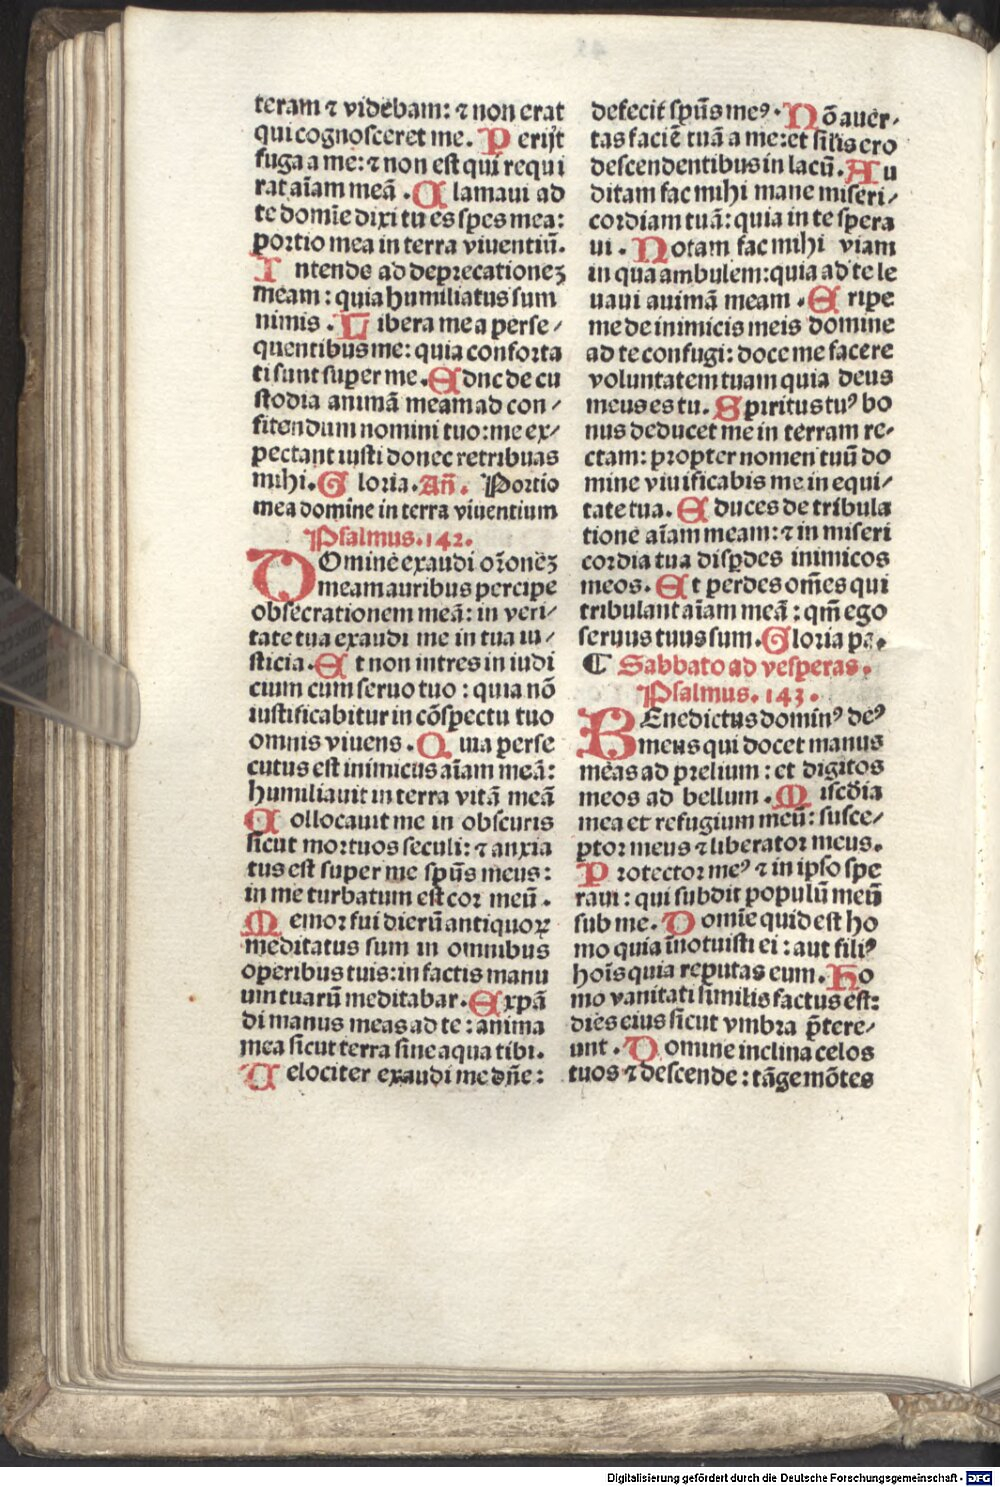 teram ⁊ videbam: ⁊ non erat
qui cognosceret me. Perijt
fuga a me: ⁊ non est qui requi
rat aīam meā . Clamaui ad
te domīe dixi tu es spes mea:
portio mea in terra viuentiū.
Intende ad deprecationeꝫ
meam: quia humiliatus sum
nimis . Libera me a perse⸗
quentibus me: quia conforta
ti sunt super me. Educ de cu
stodia animā meam ad con⸗
fitendum nomini tuo: me ex⸗
pectant iusti donec retribuas
mihi. Gloria. Añ. Portio
mea domine in terra viuentium
Psalmus. 142.
Domine exaudi or̄oneꝫ
meam auribus percipe
obsecrationem meā: in veri⸗
tate tua exaudi me in tua iu⸗
sticia. Et non intres in iudi
cium cum seruo tuo: quia nō
iustificabitur in cōspectu tuo
omnis viuens. Quia perse
cutus est inimicus aīam meā:
humiliauit in terra vitā meā
Collocauit me in obscuris
sicut mortuos seculi: ⁊ anxia
tus est super me spūs meus:
in me turbatum est cor meū.
Memor fui dierū antiquoꝝ
meditatus sum in omnibus
operibus tuis: in factis manu
um tuarū meditabar. Expā
di manus meas ad te: anima
mea sicut terra sine aqua tibi.
Uelociter exaudi me dñe:
defecit spūs meꝰ. Nō auer⸗
tas faciē tuā a me: et silis ero
descendentibus in lacū. Au
ditam fac mihi mane miseri⸗
cordiam tuā: quia in te spera
ui. Notam fac mihi viam
in qua ambulem: quia ad te le
uaui auimā meam. Eripe
me de inimicis meis domine
ad te confugi: doce me facere
voluntatem tuam quia deus
meus es tu. Spiritus tuꝰ bo
nus deducet me in terram re⸗
ctam: propter nomen tuū do
mine viuificabis me in equi⸗
tate tua. Educes de tribula
tione aīam meam: ⁊ in miseri
cordia tua disꝑdes inimicos
meos. Et perdes om̄es qui
tribulant aīam meā: qm̄ ego
seruus tuus sum. Gloria pa.
¶ Sabbato ad vesperas.
Psalmus. 143.
BEnedictus dominꝰ deꝰ
meus qui docet manus
meas ad prelium: et digitos
meos ad bellum. Miscd̄ia
mea et refugium meū: susce⸗
ptor meus ⁊ liberator meus.
Protector meꝰ ⁊ in ipso spe
raui: qui subdit populū meū
sub me. Domīe quid est ho
mo quia īnotuisti ei: aut filiꝰ
hoīs quia reputas eum. Ho
mo vanitati similis factus est:
dies eius sicut vmbra p̄tere⸗
unt. Domine inclina celos
tuos ⁊ descende: tāge mōtes
Digitalisierung gefördert durch die Deutsche Forschungsgemeinschaft - DFG